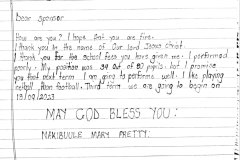 Dear Sponsor
How are you? I hope that you are fine.
I thank you in the name of Our Lord Jesus Christ.
I thank you for the school fees you have given me. I performed
poorly. My position was 34 out of 80 pupils. but I promise
you that next term I am going to performe well. I like playing
netball, football. Third term we are going to begin on
18/09/2023
MAY GOD BLESS YOU:
NAKIBUULE MARY PRETTY.